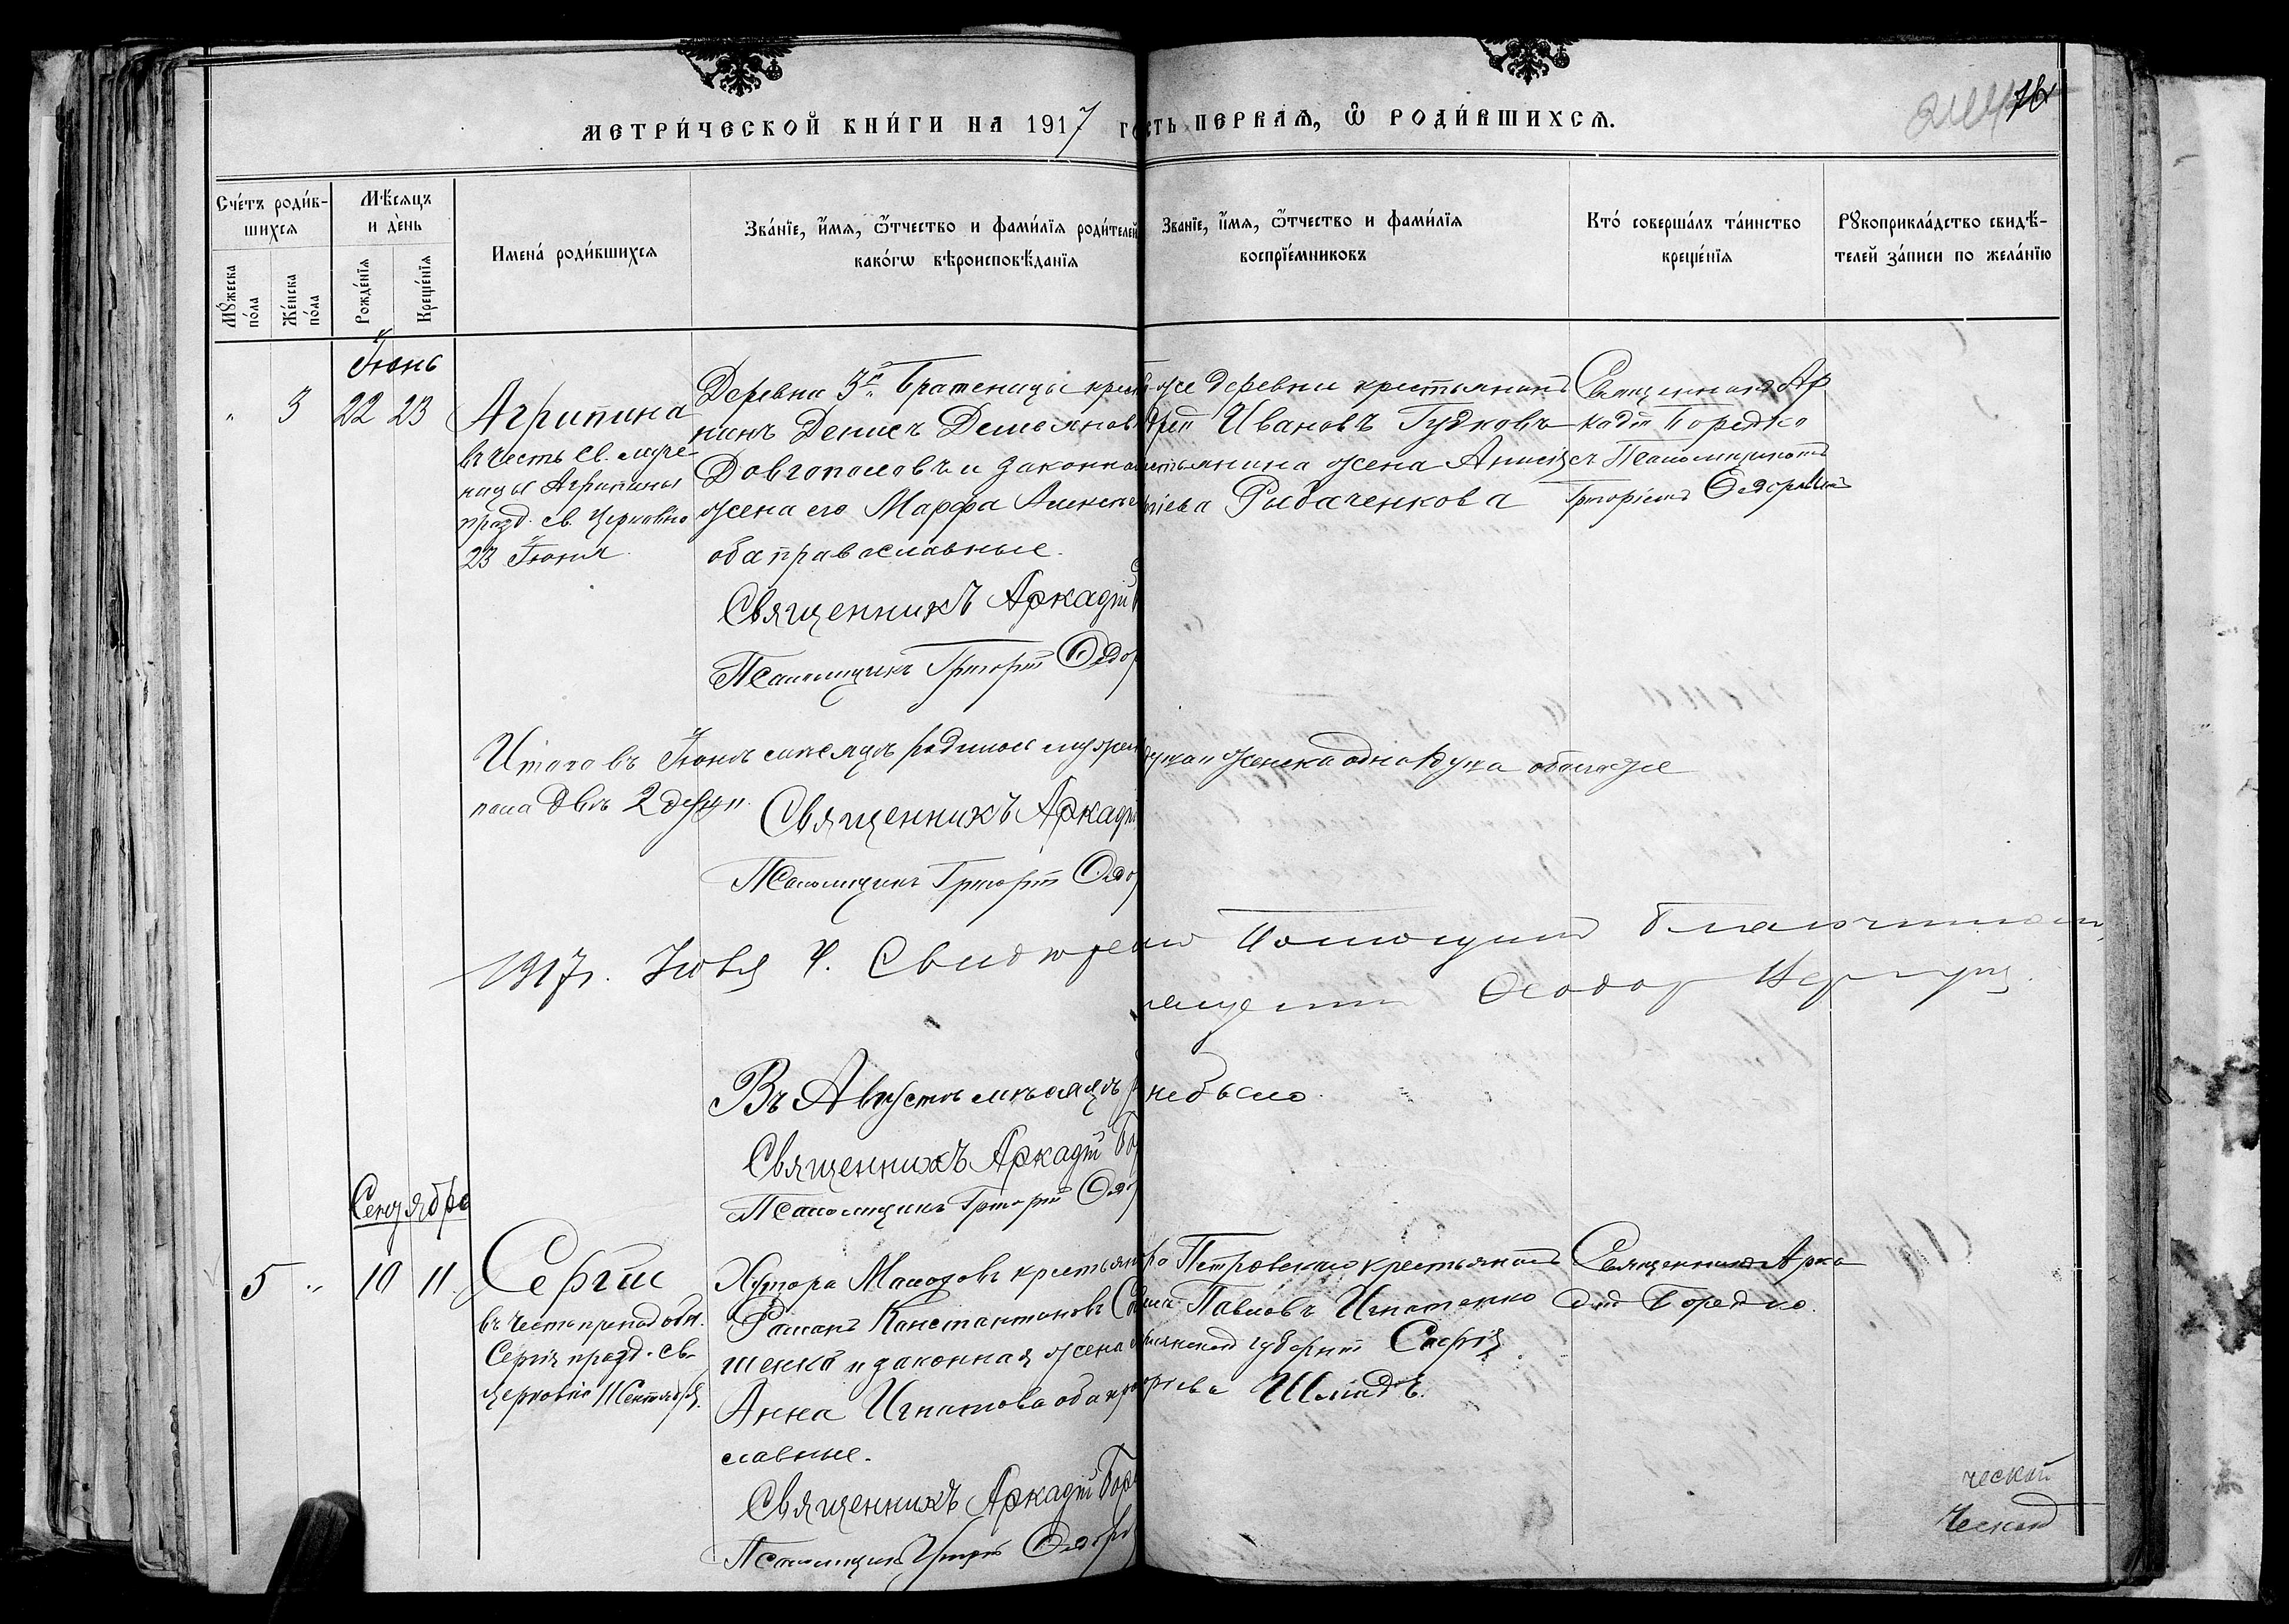 МЕТРИ́ЧЕСКОЙ КНИ́ГИ НА 1917 ГО
СТЬ ПЕРВАѦ, Ѡ҆ РОДИ́ВШИХСѦ.
Сче́тъ роди́в-
шихсѧ
Мꙋ́жеска по́ла
Же́нска по́ла
Мѣ́сѧцъ
и де́нь
Рожде́нїѧ
Креще́нїѧ
Имена́ роди́вшихсѧ
Зва́нїе, и҆́мѧ, ѻ҆́тчество и фами́лїѧ роди́телей
како́гѡ вѣроисповѣ́данїѧ
Зва́нїе, и҆́мѧ, ѻ҆́тчество и фами́лїѧ
воспрїе́мниковъ
Кто́ соверша́лъ та́инство
креще́нїѧ
Рꙋкоприкла́дство свидѣ́-
телей за́писи по жела́нїю
Іюнь
" 3 22 23
Агрипина
въ честь св. муче-
ницы Агрипины
празд. св. Церковію
23 Іюня
Деревни 3й Братеницы крест
нинъ Денисъ Демьяновъ
Довгополовъ и законная
жена его Марфа Алексѣев
оба православные.
Священникъ Аркадій
Псаломщикъ Григорій Ѳедор
же деревни крестьянинъ
Ивановъ Гудковъ
жена Анисія
Рыбаченкова
Священникъ Ар
кадій Боредко
съ Псаломщикомъ
Григоріемъ Ѳедоровымъ
Итого въ Іюнѣ мѣсяцѣ родилось мужеск
пола двѣ 2 души
душа и женска одна душа обоего же
Священникъ Аркадій
Псаломщикъ Григорій Ѳедо
1917 г. Іюля 4. Свидѣтел
Помощникъ Благочиннаго
Ѳеодор
Въ Августѣ мѣсяцѣ
не было.
Священникъ Аркадій Бо
Псаломщикъ Григорій Ѳедо
Сентябрь
5 " 10 11
Сергій
въ честь преподобн.
Сергія празд. св.
церковію 11 Сентября.
Хутора Малодовъ крестьян
Романъ Константиновъ
шенко и законная жена
Анна Игнатова оба пра
славные.
Священникъ Аркадій Бор
Псаломщикъ Григорій Ѳедоро
Петровскаго крестьянинъ
Павловъ Игнатенко
губерніи Софія
Шмидтъ.
Священникъ Арка
дій Боредко.
ческой
ческой